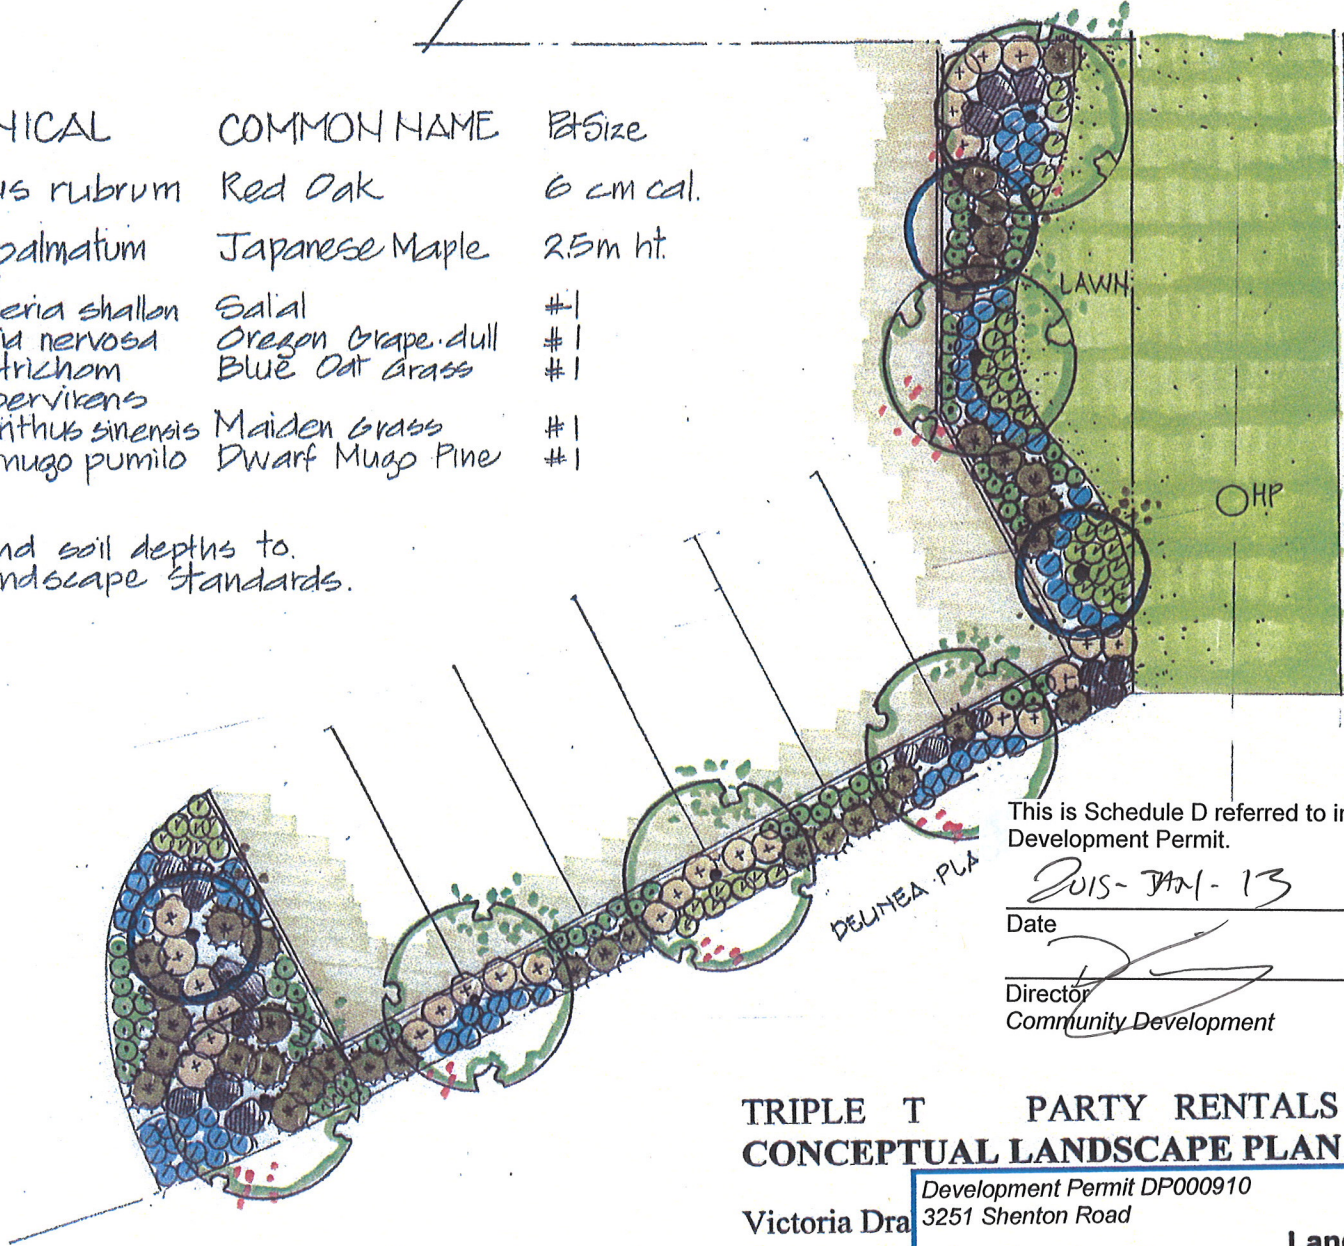 NICAL COMMON NAME Pot Size
us rubrum Red Oak 6 cm cal.
palmatum Japanese Maple 2.5m ht.
eria shallon Salal #1
ia nervosa Oregon Grape·dull #1
trichom Blue Oat Grass #1
pervirens
nthus sinensis Maiden Grass #1
mugo pumilo Dwarf Mugo Pine #1
nd soil depths to.
ndscape Standards.
LAWN
HP
DELINEA PLA
This is Schedule D referred to in
Development Permit.
2015-JAN-13
Date
Director
Community Development
TRIPLE T PARTY RENTALS
CONCEPTUAL LANDSCAPE PLAN
Development Permit DP000910
Victoria Dra 3251 Shenton Road
Land